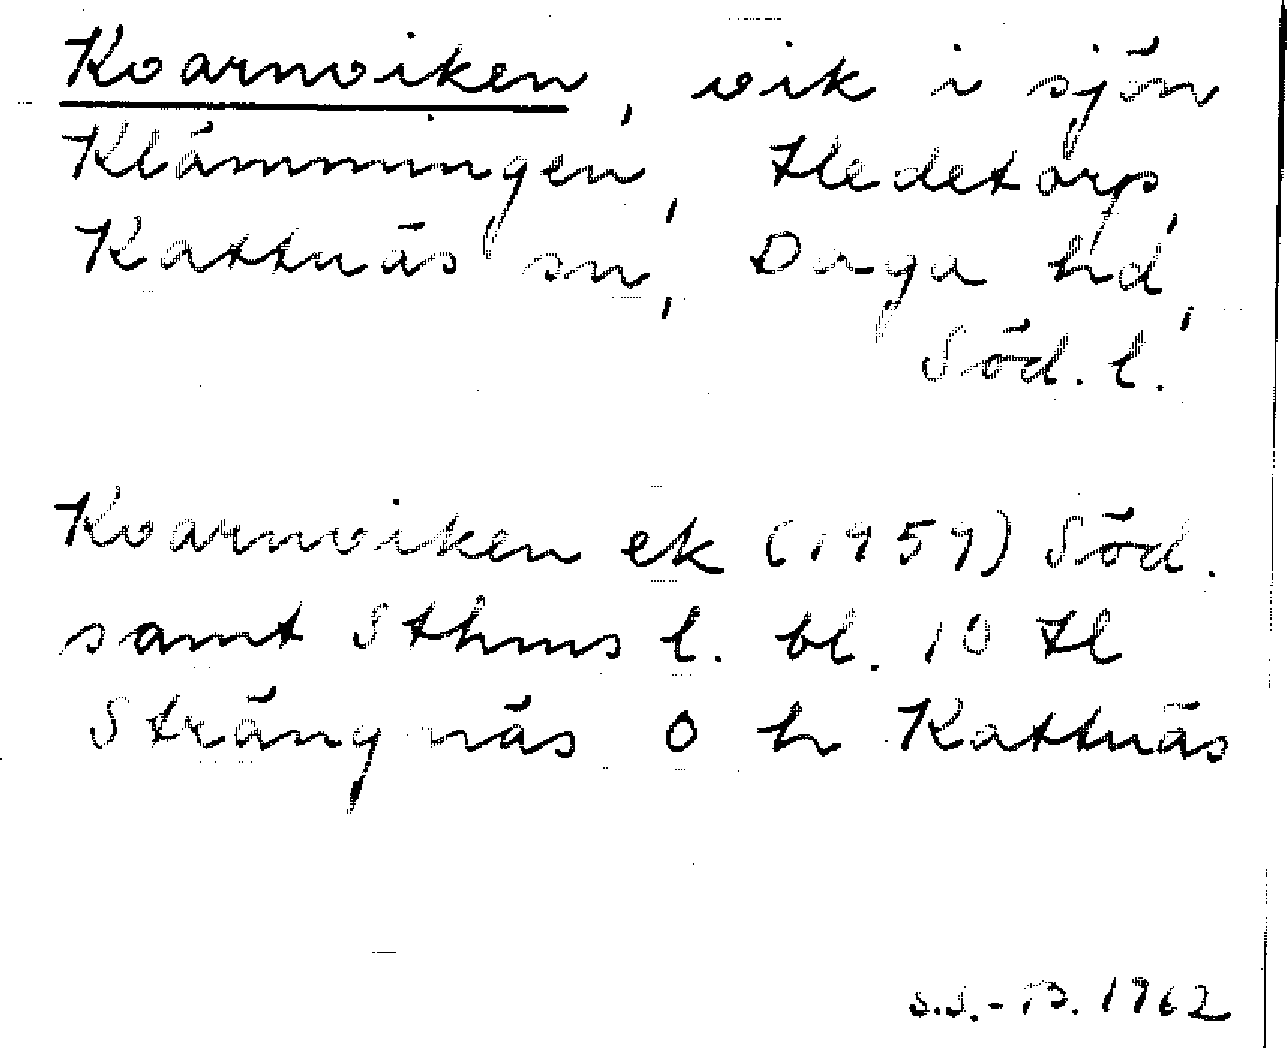 Kvarnviken, vik i sjön
Klämmingen, Hedetorp,
Kattnäs sn, Daga hd,
Söd. l.
Kvarnviken ek (1959) Söd.
samt Sthms l. bl. 10 H l
Strängnäs O h Kattnäs
S.S.-B. 1962